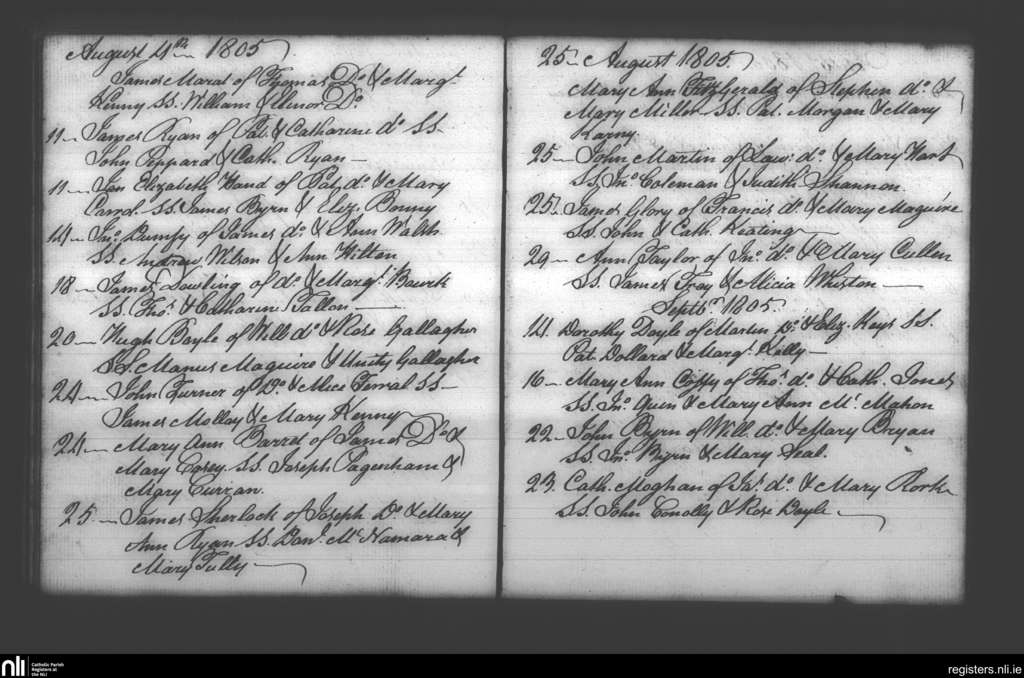 August 4th 1805
James Marat of Thomas Do & Margt
Kenny SS. William & Elinor Do
11 James Ryan of Pat. & Catharine do SS.
John Peppard & Cath. Ryan
11 Jan Elizabeth Hand of Pat. do & Mary
Carrol. SS. James Byrn & Eliz. Bonny
14 Jno. of James do & Ann Walsh
SS. Andrew Wilson & Ann Hilton
18 James Dowling of do & Margt. Bourk
SS. Thos. & Catharine Fallon
20 Hugh Boyle of Will do & Rose Gallagher
SS. Manus Maguire & Unity Gallagher
24 John Turner of Do. & Alice Farral SS
James Molloy & Mary Kenny
24 Mary Ann Barret of James Do. &
Mary Casey. SS. Joseph Pagenham &
Mary Curran.
25 James Sherlock of Joseph Do & Mary
Ann Ryan SS. Danl. McNamara &
Mary Tully
25 August 1805
Mary Ann FitzGerald of Stephen do. &
Mary Miller SS. Pat. Morgan & Mary
Karny.
25 John Martin of Law: do. & Mary Hart
SS. Jno. Coleman & Judith Shannon.
25. James Glory of Francis do. & Mary Maguire
SS. John & Cath. Keating
29 Ann Taylor of Jno. do. & Mary Cullen
SS. James Fray & Alicia Whiston
Septbr. 1805.
14. Dorothy Doyle of Martin Do. & Eliz. Keys SS.
Pat. Dollard & Margt. Kelly
16 Mary Ann Coffy of Thos. do. & Cath. Jones
SS. Jno. Quin & Mary Ann Mc. Mahon
22 John Byrn of Will. do. & Mary Bryan
SS. Jno. Byrn & Mary Neal.
23. Cath. Meghan of Jas. do. & Mary Rork
SS. John Conolly & Rose Doyle
nli
Catholic Parish
Registers at
the NLI
registers.nli.ie